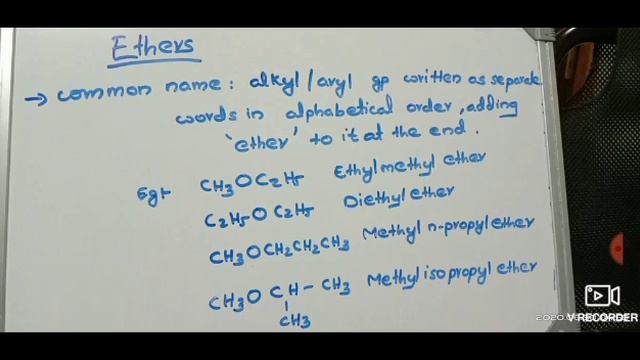 Ethers
→ common name: alkyl/aryl gp written as separate
words in alphabetical order, adding
'ether' to it at the end.
Eg:- CH3OC2H5 Ethylmethyl ether
C2H5OC2H5 Diethyl ether
CH3OCH2CH2CH3 Methyl n-propyl ether
CH3O CH - CH3 Methyl isopropyl ether
CH3
V RECORDER